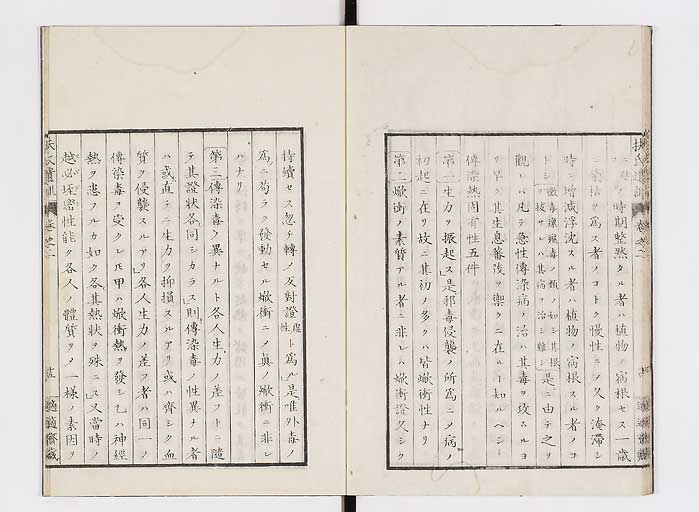 ニ起リ時期整然タル者ハ植物ノ病根セス一歳
ニ榮枯ヲ為ス者ノコトク慢性ニノ久ク淹滯シ
時ニ増減浮沈スル者ハ植物ノ病根スル者ノコ
トシ 黴毒瘰癧毒ノ類ノ如シ其根ヲ拔サレハ其病ヲ治シ難シ 是ニ由テ之ヲ
觀レハ凡テ急性傳染病ノ治ハ其毒ヲ攻ムルヨ
リ早ク其生息蕃後ヲ禦クニ在ルヿ知ルヘシ
傳染熱固有性五件
第一生力ヲ振起ス是邪毒侵襲ノ所為ニノ病ノ
初起ニ在リ故ニ其初ノ多クハ皆焮衝性ナリ
第二焮衝ノ素質アル者ニ非レハ焮衝證久シク
扶氏遺訓 卷之二
適適齋藏
持續セス忽チ轉ノ反對證虚性ト為ル是唯外毒ノ
為ニ苟ラク發動セル焮衝ニノ眞ノ焮衝ニ非レ
ハナリ
第三傳染毒ノ異ナルト各人生力ノ差フトニ隨
テ其證状各同シカラス則傳染毒ノ性異ナル者
ハ或直チニ生力ヲ抑損スルアリ或ハ齊シク血
質ヲ侵襲スルアリ各人生力ノ差フ者ハ同一ノ
傳染毒ヲ受クレ𪜈甲ハ焮衝熱ヲ發シ乙ハ神經
熱ヲ患フルカ如ク各其熱状ヲ殊ニス又當時ノ
越必埕密性能ク各人ノ體質ヲノ一様ノ素因ヲ
扶氏遺訓 卷之二
適適齋藏